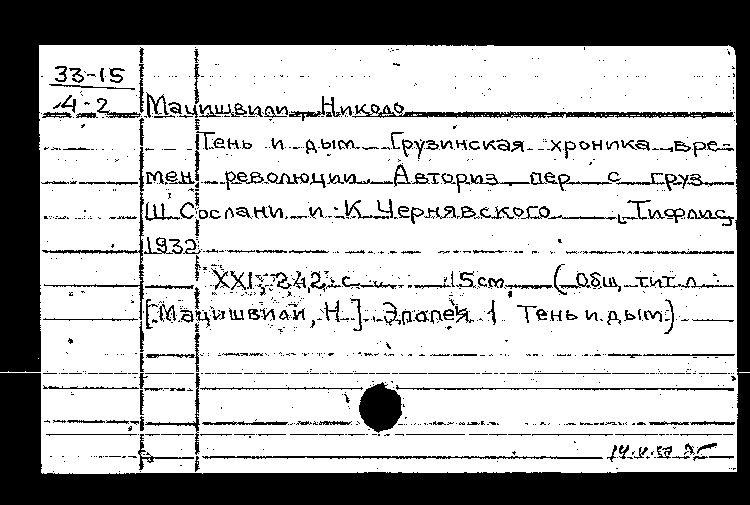 33-15
4-2 Мацишвили, Николо
Тень и дым. Грузинская хроника вре-
мен революции. Авториз. пер. с груз.
Ш. Сослани и К. Чернявского. [Тифлис],
1932
XXI, 242 с. 15 см. (Общ. тит. л.:
[Мацишвили, Н.]. Эпопея 1 Тень и дым.)